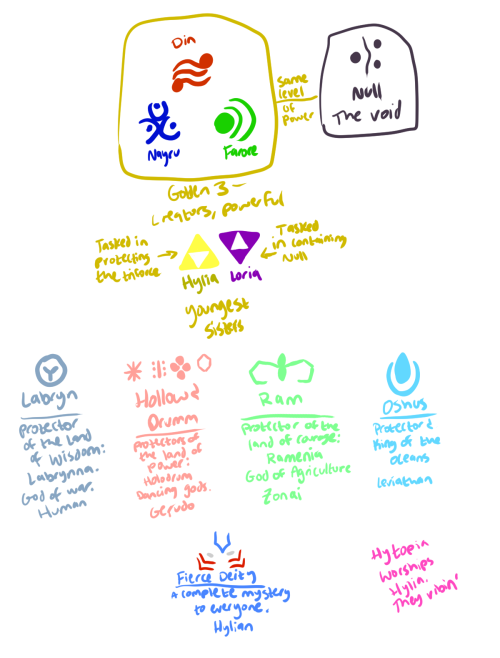 Din
Nayru
Farore
same
level
of
power
Null
The void
Golden 3 -
Creators, powerful
Tasked in
protecting
the triforce
Hylia
Loria
Tasked
in containing
Null
youngest
sisters
Labryn
protector
of the land
of wisdom:
Labrynna.
God of war.
Human
Hollow &
Drumm
protectors of
the land of
power:
Holodrum
Dancing gods.
Gerudo
Ram
Protector of the
land of courage:
Ramenia
God of Agriculture
Zonai
Oshus
Protector &
King of the
oceans
Leviathan
Fierce Deity
A complete mystery
to everyone.
Hylian
Hytopia
worships
Hylia.
They vibin'